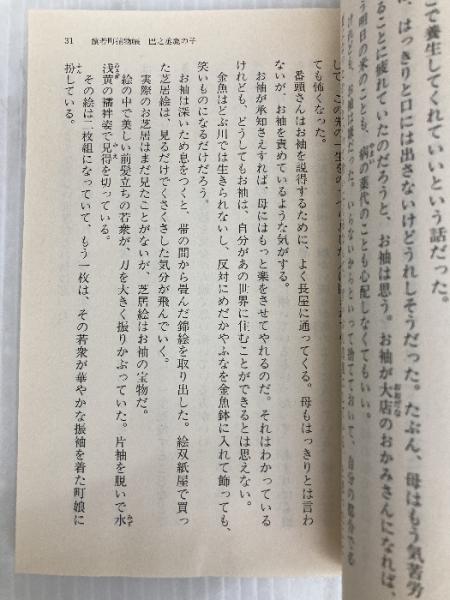 で養生してくれていいという話だった。
は、はっきりと口には出さないけどうれしそうだった。たぶん、母はもう気苦労
ることに疲れていたのだろうと、お袖は思う。お袖が大店のおかみさんになれば、
う明日の米のことも、病の薬代のことも心配しなくてもいい。
お袖は嫌だった。いらないからといって捨てておいて、自分の都合で
して、この先の一生を
31 猿若町捕物帳 巴之丞鹿の子
ても怖くなった。
番頭さんはお袖を説得するために、よく長屋に通ってくる。母もはっきりとは言わ
ないが、お袖を責めているような気がする。
お袖が承知さえすれば、母にはもっと楽をさせてやれるのだ。それはわかっている
けれども、どうしてもお袖は、自分があの世界に住むことができるとは思えない。
金魚はどぶ川では生きられないし、反対にめだかやふなを金魚鉢に入れて飾っても、
笑いものになるだけだろう。
お袖は深いため息をつくと、帯の間から畳んだ錦絵を取り出した。絵双紙屋で買っ
た芝居絵は、見るだけでくさくさした気分が飛んでいく。
実際のお芝居はまだ見たことがないが、芝居絵はお袖の宝物だ。
絵の中で美しい前髪立ちの若衆が、刀を大きく振りかぶっていた。片袖を脱いで水
浅黄の襦袢姿で見得を切っている。
その絵は二枚組になっていて、もう一枚は、その若衆が華やかな振袖を着た町娘に
扮している。